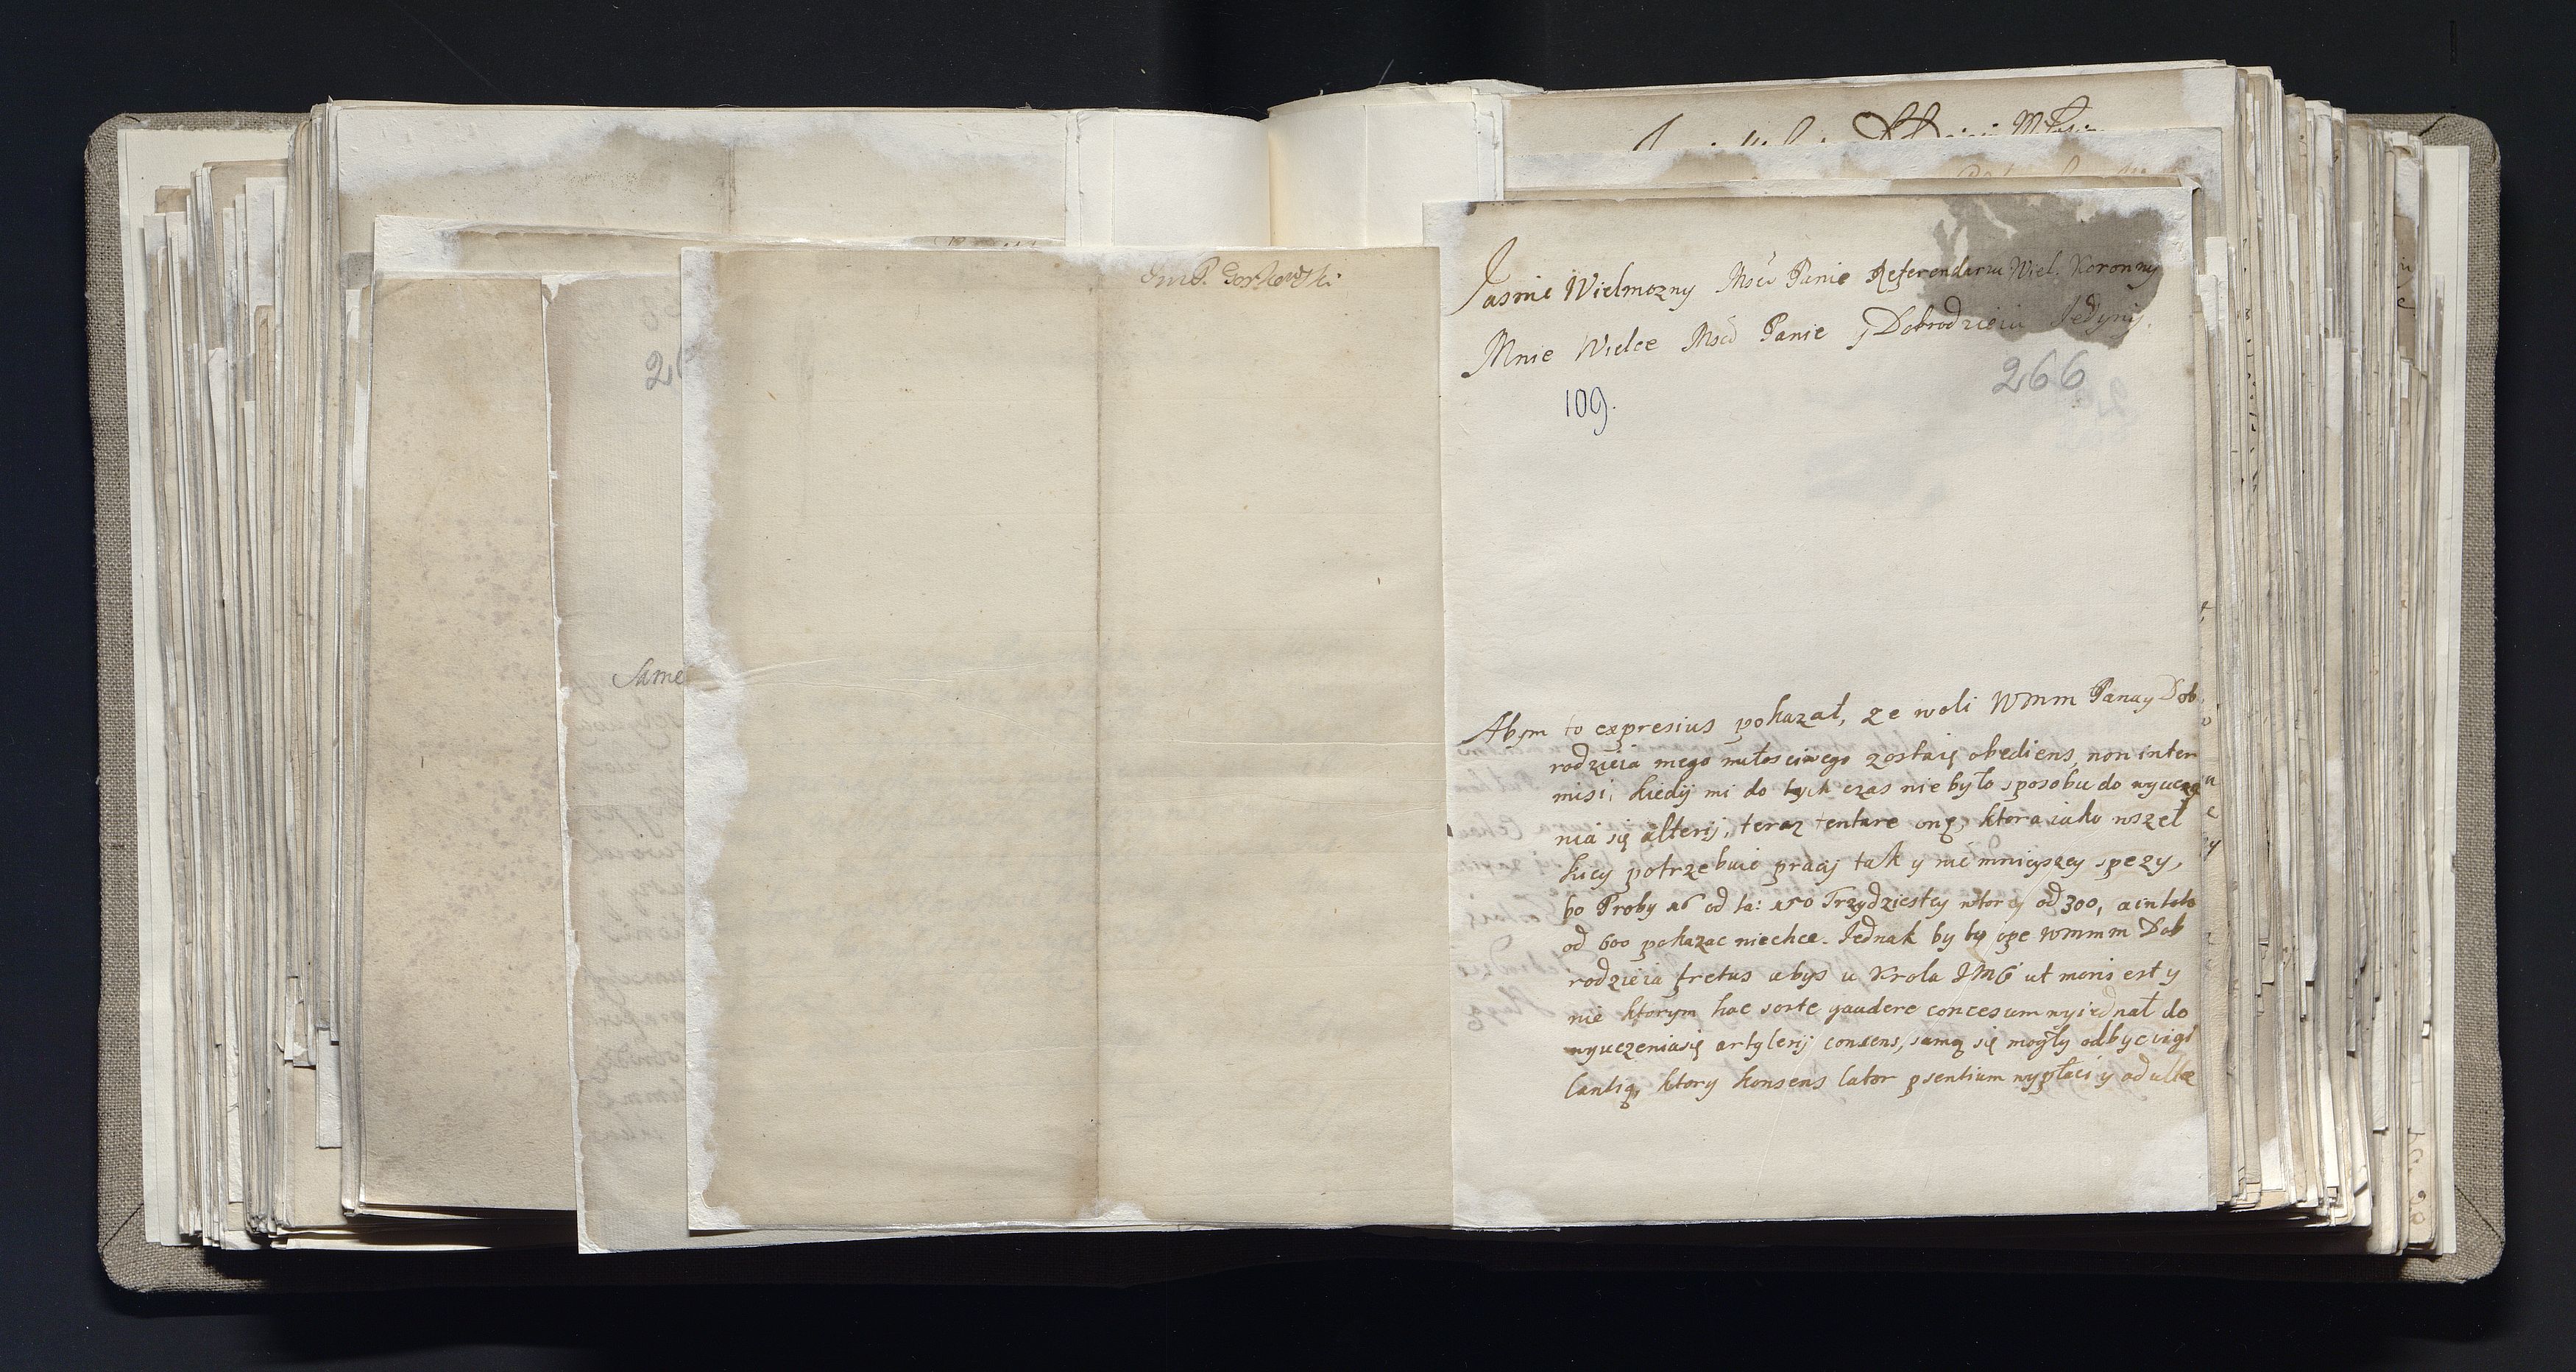 JmP. Gorkowski
Same
Jasnie Wielmozny Mści Panie Referendarzu Wiel. Koronny
Mnie Wielce Mści Panie y Dobrodzieiu Jedyny.
266
109.
Abym to expresius pokazał, ze woli WMM Pana y Dob
rodzieia mego miłosciwego zostaię obediens, non inter
misi, kiedy mi do tych czas nie było sposobu do wyucze
nia się alterij, teraz tentare onę, ktora iako wszel
kiey potrzebuie pracy tak y nie mnieyszey spezy,
bo Proby 16 od ta: 150 Trzydziestey wtorey od 300, a in toto
od 600 pokazac niechce. Jednak by by ope WMMM Dob
rodzieia fretus abys u Krola JMC ut moris est y
nie ktorym hac sorte gaudere concesum wyiednał do
wyuczenia się artylerij consens, samą się mogły odbyc vigi
lantią, ktory konsens lator psentium wypłaci y od